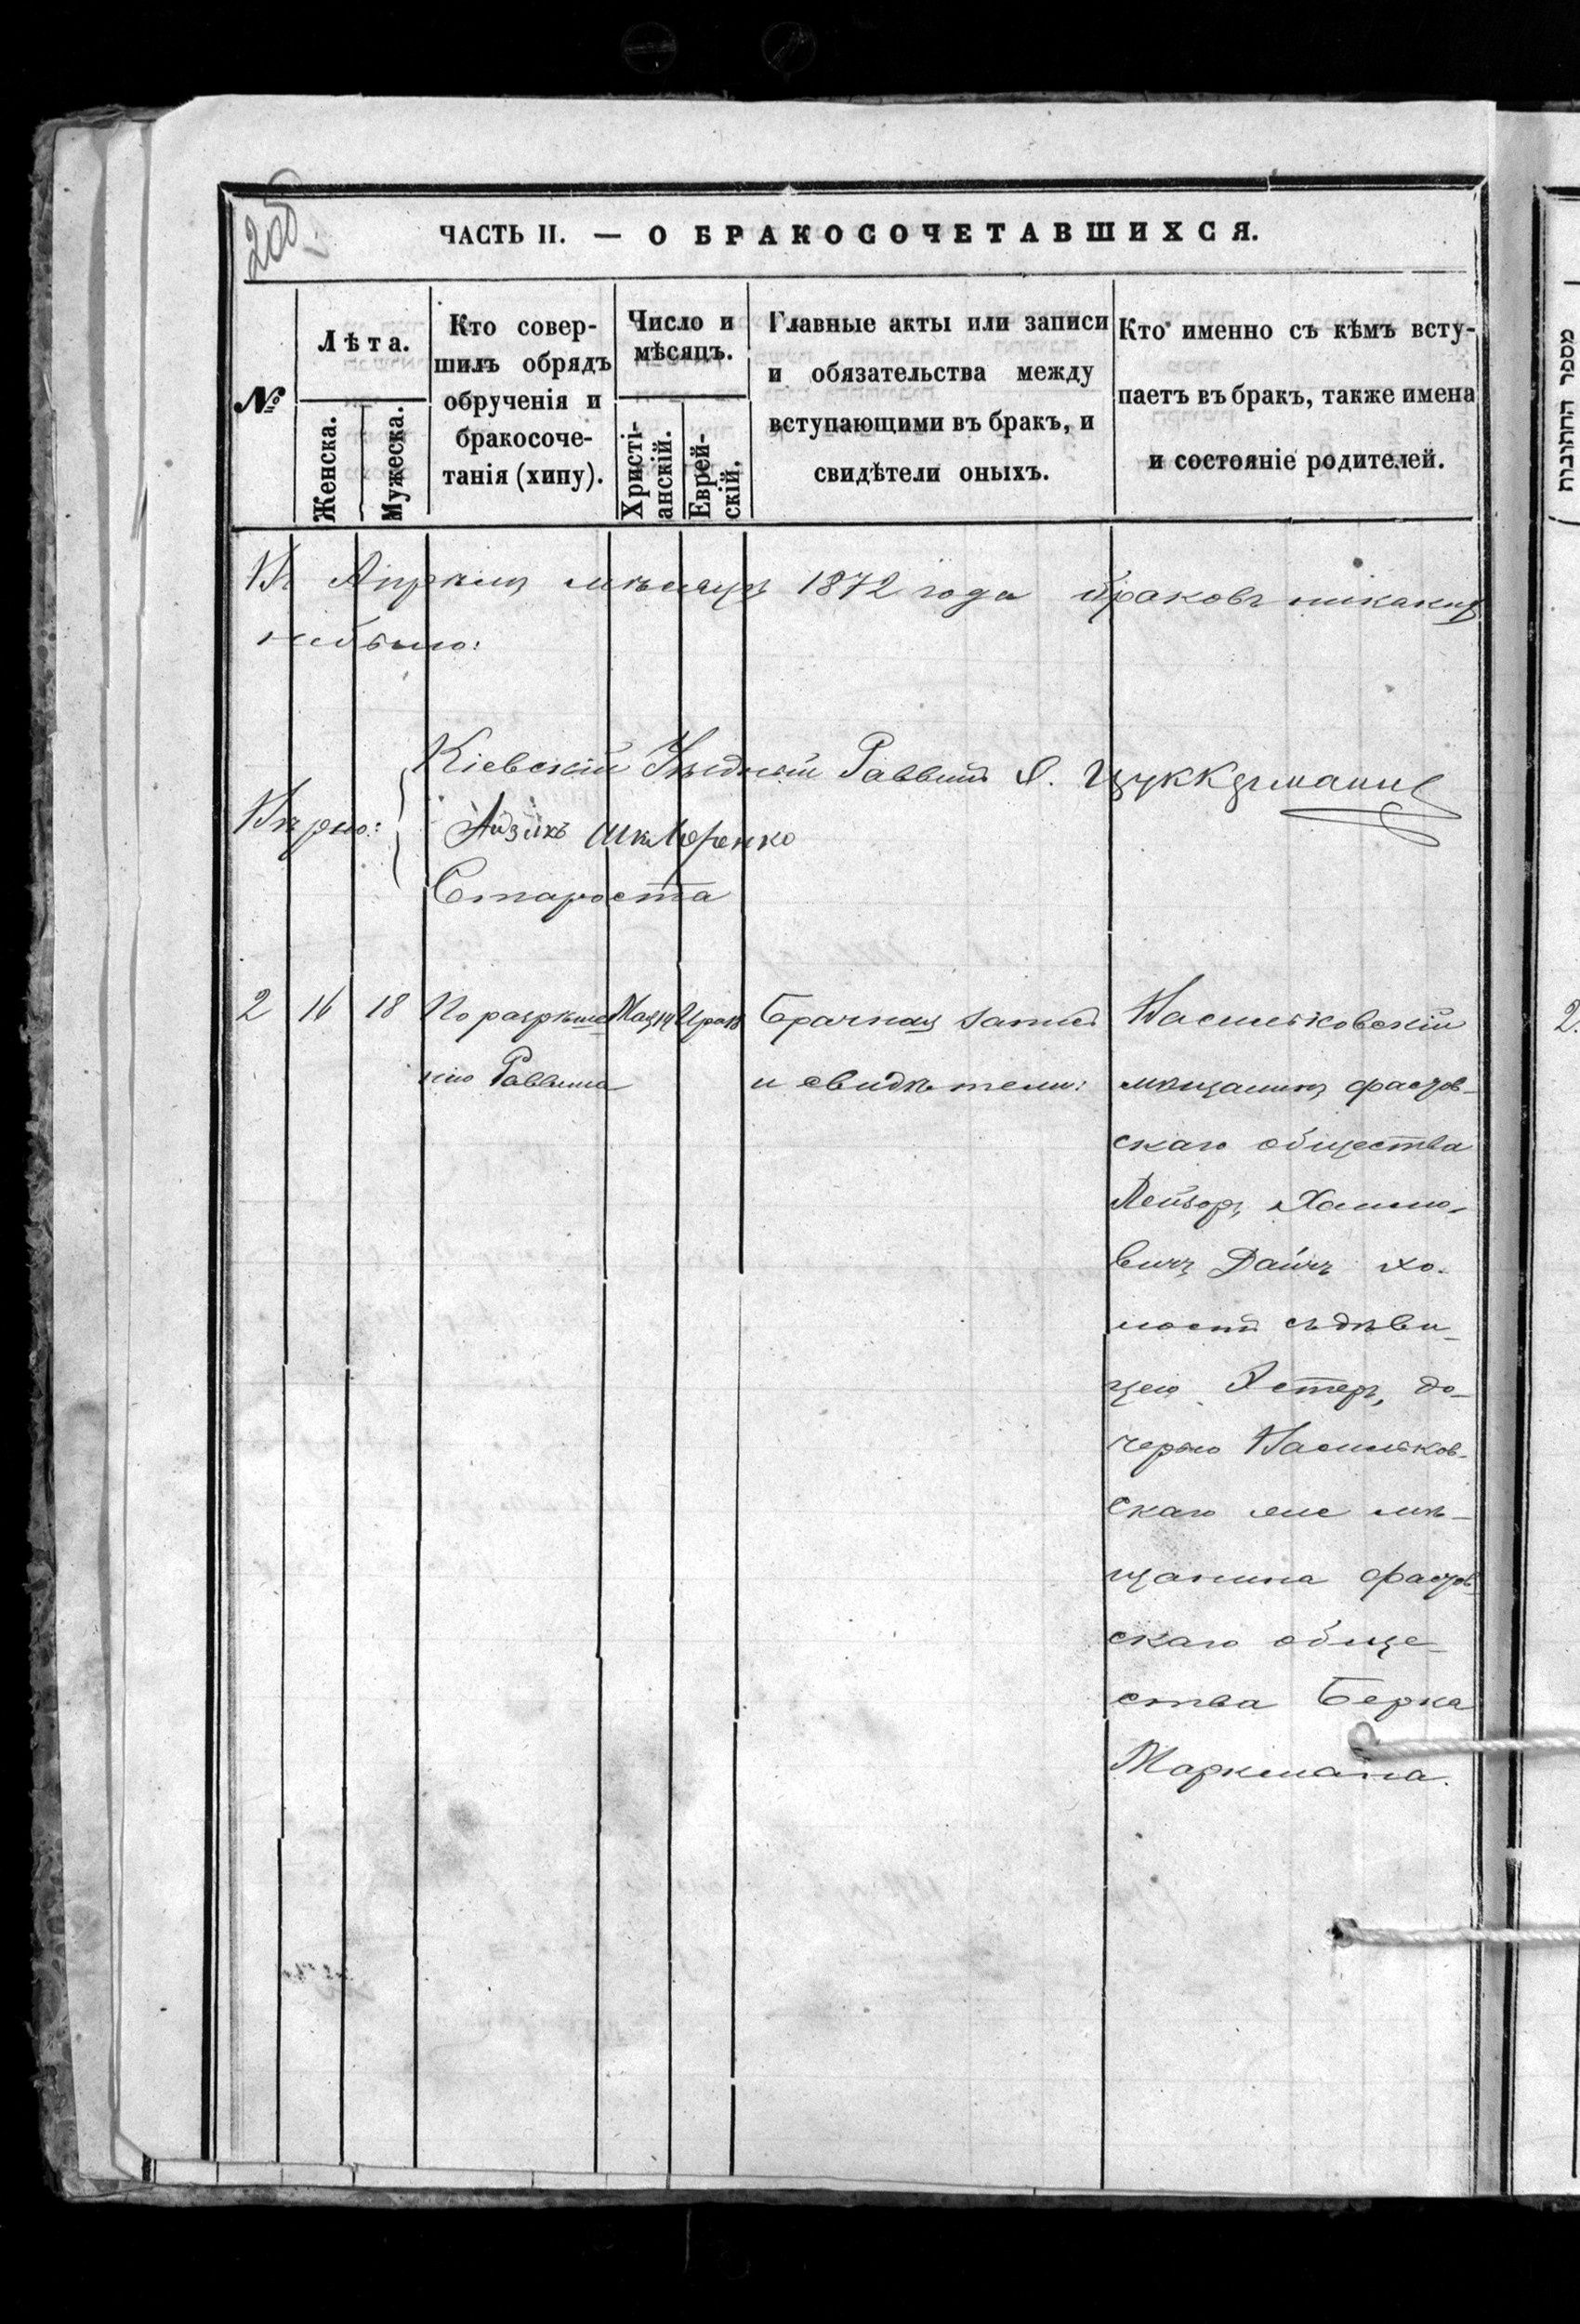 205
ЧАСТЬ II. — О БРАКОСОЧЕТАВШИХСЯ.
№
Лѣта.
Женска.
Мужеска.
Кто совер-
шилъ обрядъ
обрученія и
бракосоче-
танія (хипу).
Число и
мѣсяцъ.
Христі-
анскій.
Еврей-
скій.
Главные акты или записи
и обязательства между
вступающими въ бракъ, и
свидѣтели оныхъ.
Кто именно съ кѣмъ всту-
паетъ въ бракъ, также имена
и состояніе родителей.
Въ Апрѣлѣ мѣсяцѣ 1872 года браковъ никакихъ
небыло:
Кіевскій Уѣздный Раввинъ Я. Цуккерманъ
Вѣрно:
Айзикъ Шкляренко
Староста
2 16 18 По разрѣше Мая 14 Ияра 18 Брачная запись Васильковскій
нію Раввина и свидѣтели: мѣщанинъ фастов-
скаго общества
Лейзоръ Хаимо-
вичъ Дайчъ хо-
лостъ съ дѣви-
цею Эстеръ, до-
черью Васильков-
скаго же мѣ-
щанина фастов
скаго обще-
ства Берка
Маркмана.
מספר החתונות
2.